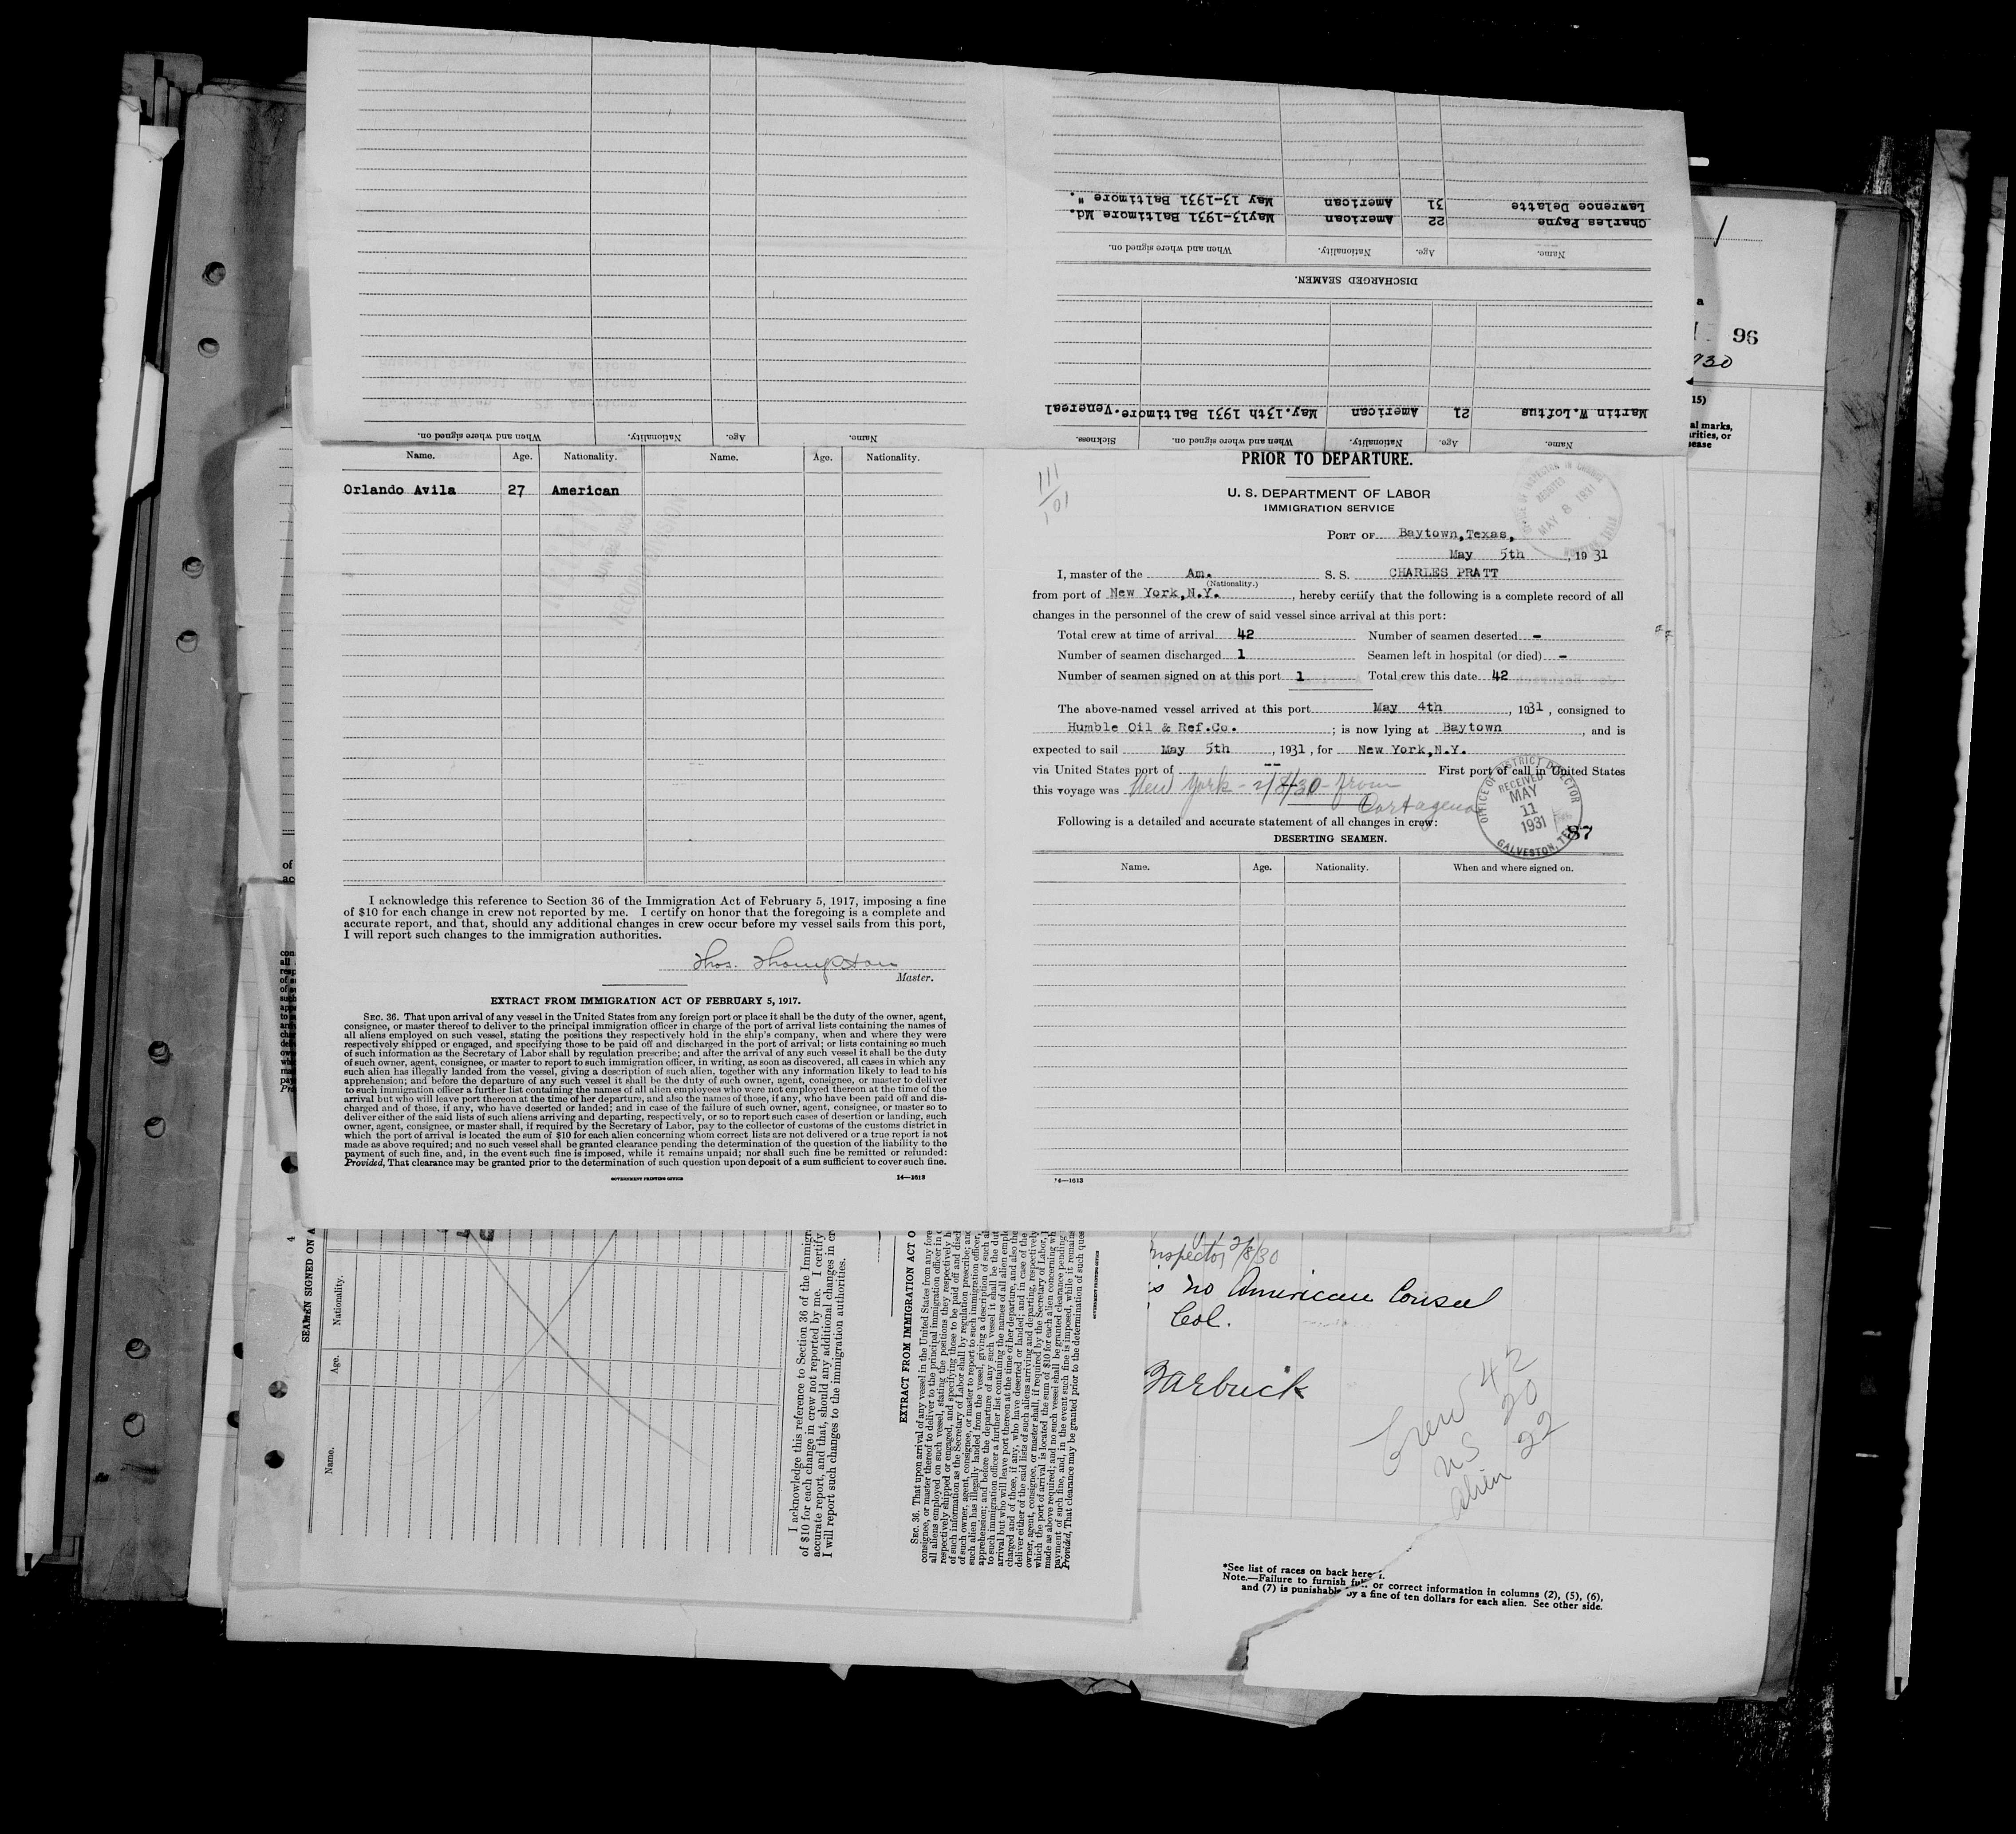 Lawrence Delatte 31 American May 13-1931 Baltimore ".
Charles Payne 22 American May13-1931 Baltimore Md.
Name. Age. Nationality. When and where signed on.
DISCHARGED SEAMEN.
Martin W.Loftus 21 American May.13th 1931 Baltimore.Venereal
Name. Age. Nationality. When and where signed on. Sickness.
Name. Age. Nationality. When and where signed on.
Name. Age. Nationality. Name. Age. Nationality.
Orlando Avila 27 American
I acknowledge this reference to Section 36 of the Immigration Act of February 5, 1917, imposing a fine
of $10 for each change in crew not reported by me. I certify on honor that the foregoing is a complete and
accurate report, and that, should any additional changes in crew occur before my vessel sails from this port,
I will report such changes to the immigration authorities.
Thos. Thompson
Master.
EXTRACT FROM IMMIGRATION ACT OF FEBRUARY 5, 1917.
SEC. 36. That upon arrival of any vessel in the United States from any foreign port or place it shall be the duty of the owner, agent,
consignee, or master thereof to deliver to the principal immigration officer in charge of the port of arrival lists containing the names of
all aliens employed on such vessel, stating the positions they respectively hold in the ship's company, when and where they were
respectively shipped or engaged, and specifying those to be paid off and discharged in the port of arrival; or lists containing so much
of such information as the Secretary of Labor shall by regulation prescribe; and after the arrival of any such vessel it shall be the duty
of such owner, agent, consignee, or master to report to such immigration officer, in writing, as soon as discovered, all cases in which any
such alien has illegally landed from the vessel, giving a description of such alien, together with any information likely to lead to his
apprehension; and before the departure of any such vessel it shall be the duty of such owner, agent, consignee, or master to deliver
to such immigration officer a further list containing the names of all alien employees who were not employed thereon at the time of the
arrival but who will leave port thereon at the time of her departure, and also the names of those, if any, who have been paid off and dis-
charged and of those, if any, who have deserted or landed; and in case of the failure of such owner, agent, consignee, or master so to
deliver either of the said lists of such aliens arriving and departing, respectively, or so to report such cases of desertion or landing, such
owner, agent, consignee, or master shall, if required by the Secretary of Labor, pay to the collector of customs of the customs district in
which the port of arrival is located the sum of $10 for each alien concerning whom correct lists are not delivered or a true report is not
made as above required; and no such vessel shall be granted clearance pending the determination of the question of the liability to the
payment of such fine, and, in the event such fine is imposed, while it remains unpaid; nor shall such fine be remitted or refunded:
Provided, That clearance may be granted prior to the determination of such question upon deposit of a sum sufficient to cover such fine.
GOVERNMENT PRINTING OFFICE 14—1613
111
101
PRIOR TO DEPARTURE.
U. S. DEPARTMENT OF LABOR
IMMIGRATION SERVICE
MAY 8 1931
PORT OF Baytown,Texas,
May 5th, 1931
I, master of the Am. S. S. CHARLES PRATT
(Nationality.)
from port of New York,N.Y., hereby certify that the following is a complete record of all
changes in the personnel of the crew of said vessel since arrival at this port:
Total crew at time of arrival 42 Number of seamen deserted -
Number of seamen discharged 1 Seamen left in hospital (or died) -
Number of seamen signed on at this port 1 Total crew this date 42
The above-named vessel arrived at this port May 4th, 1931, consigned to
Humble Oil & Ref.Co.; is now lying at Baytown, and is
expected to sail May 5th, 1931, for New York,N.Y.
via United States port of -- First port of call in United States
this voyage was New York - 2/8/30 - from
Cartagena
Following is a detailed and accurate statement of all changes in crew:
OFFICE OF DISTRICT DIRECTOR
RECEIVED
MAY
11
1931
GALVESTON, TEX
87
DESERTING SEAMEN.
Name. Age. Nationality. When and where signed on.
14—1613
96
930
15)
al marks,
rities, or
sease
SEAMEN SIGNED ON A
Name. Age. Nationality.
I acknowledge this reference to Section 36 of the Immigr
of $10 for each change in crew not reported by me. I certify
accurate report, and that, should any additional changes in cr
I will report such changes to the immigration authorities.
EXTRACT FROM IMMIGRATION ACT O
nspector 2/8/30
is no American Consul
Col.
Tarbuck
Crew 42
US 20
alien 22
*See list of races on back hereof.
Note.—Failure to furnish full or correct information in columns (2), (5), (6),
and (7) is punishable by a fine of ten dollars for each alien. See other side.